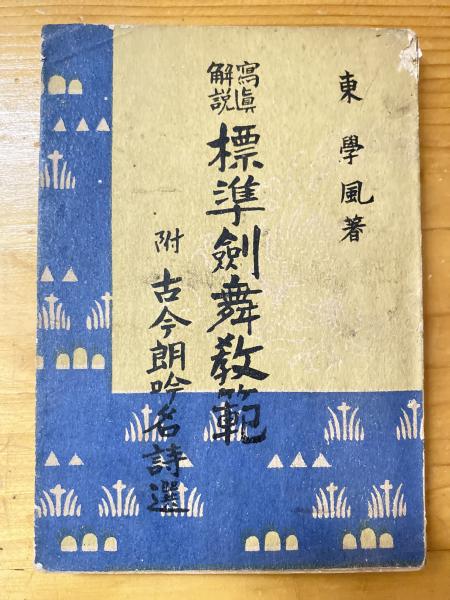 東學風著
寫眞
解説
標準劍舞教範
附 古今朗吟名詩選